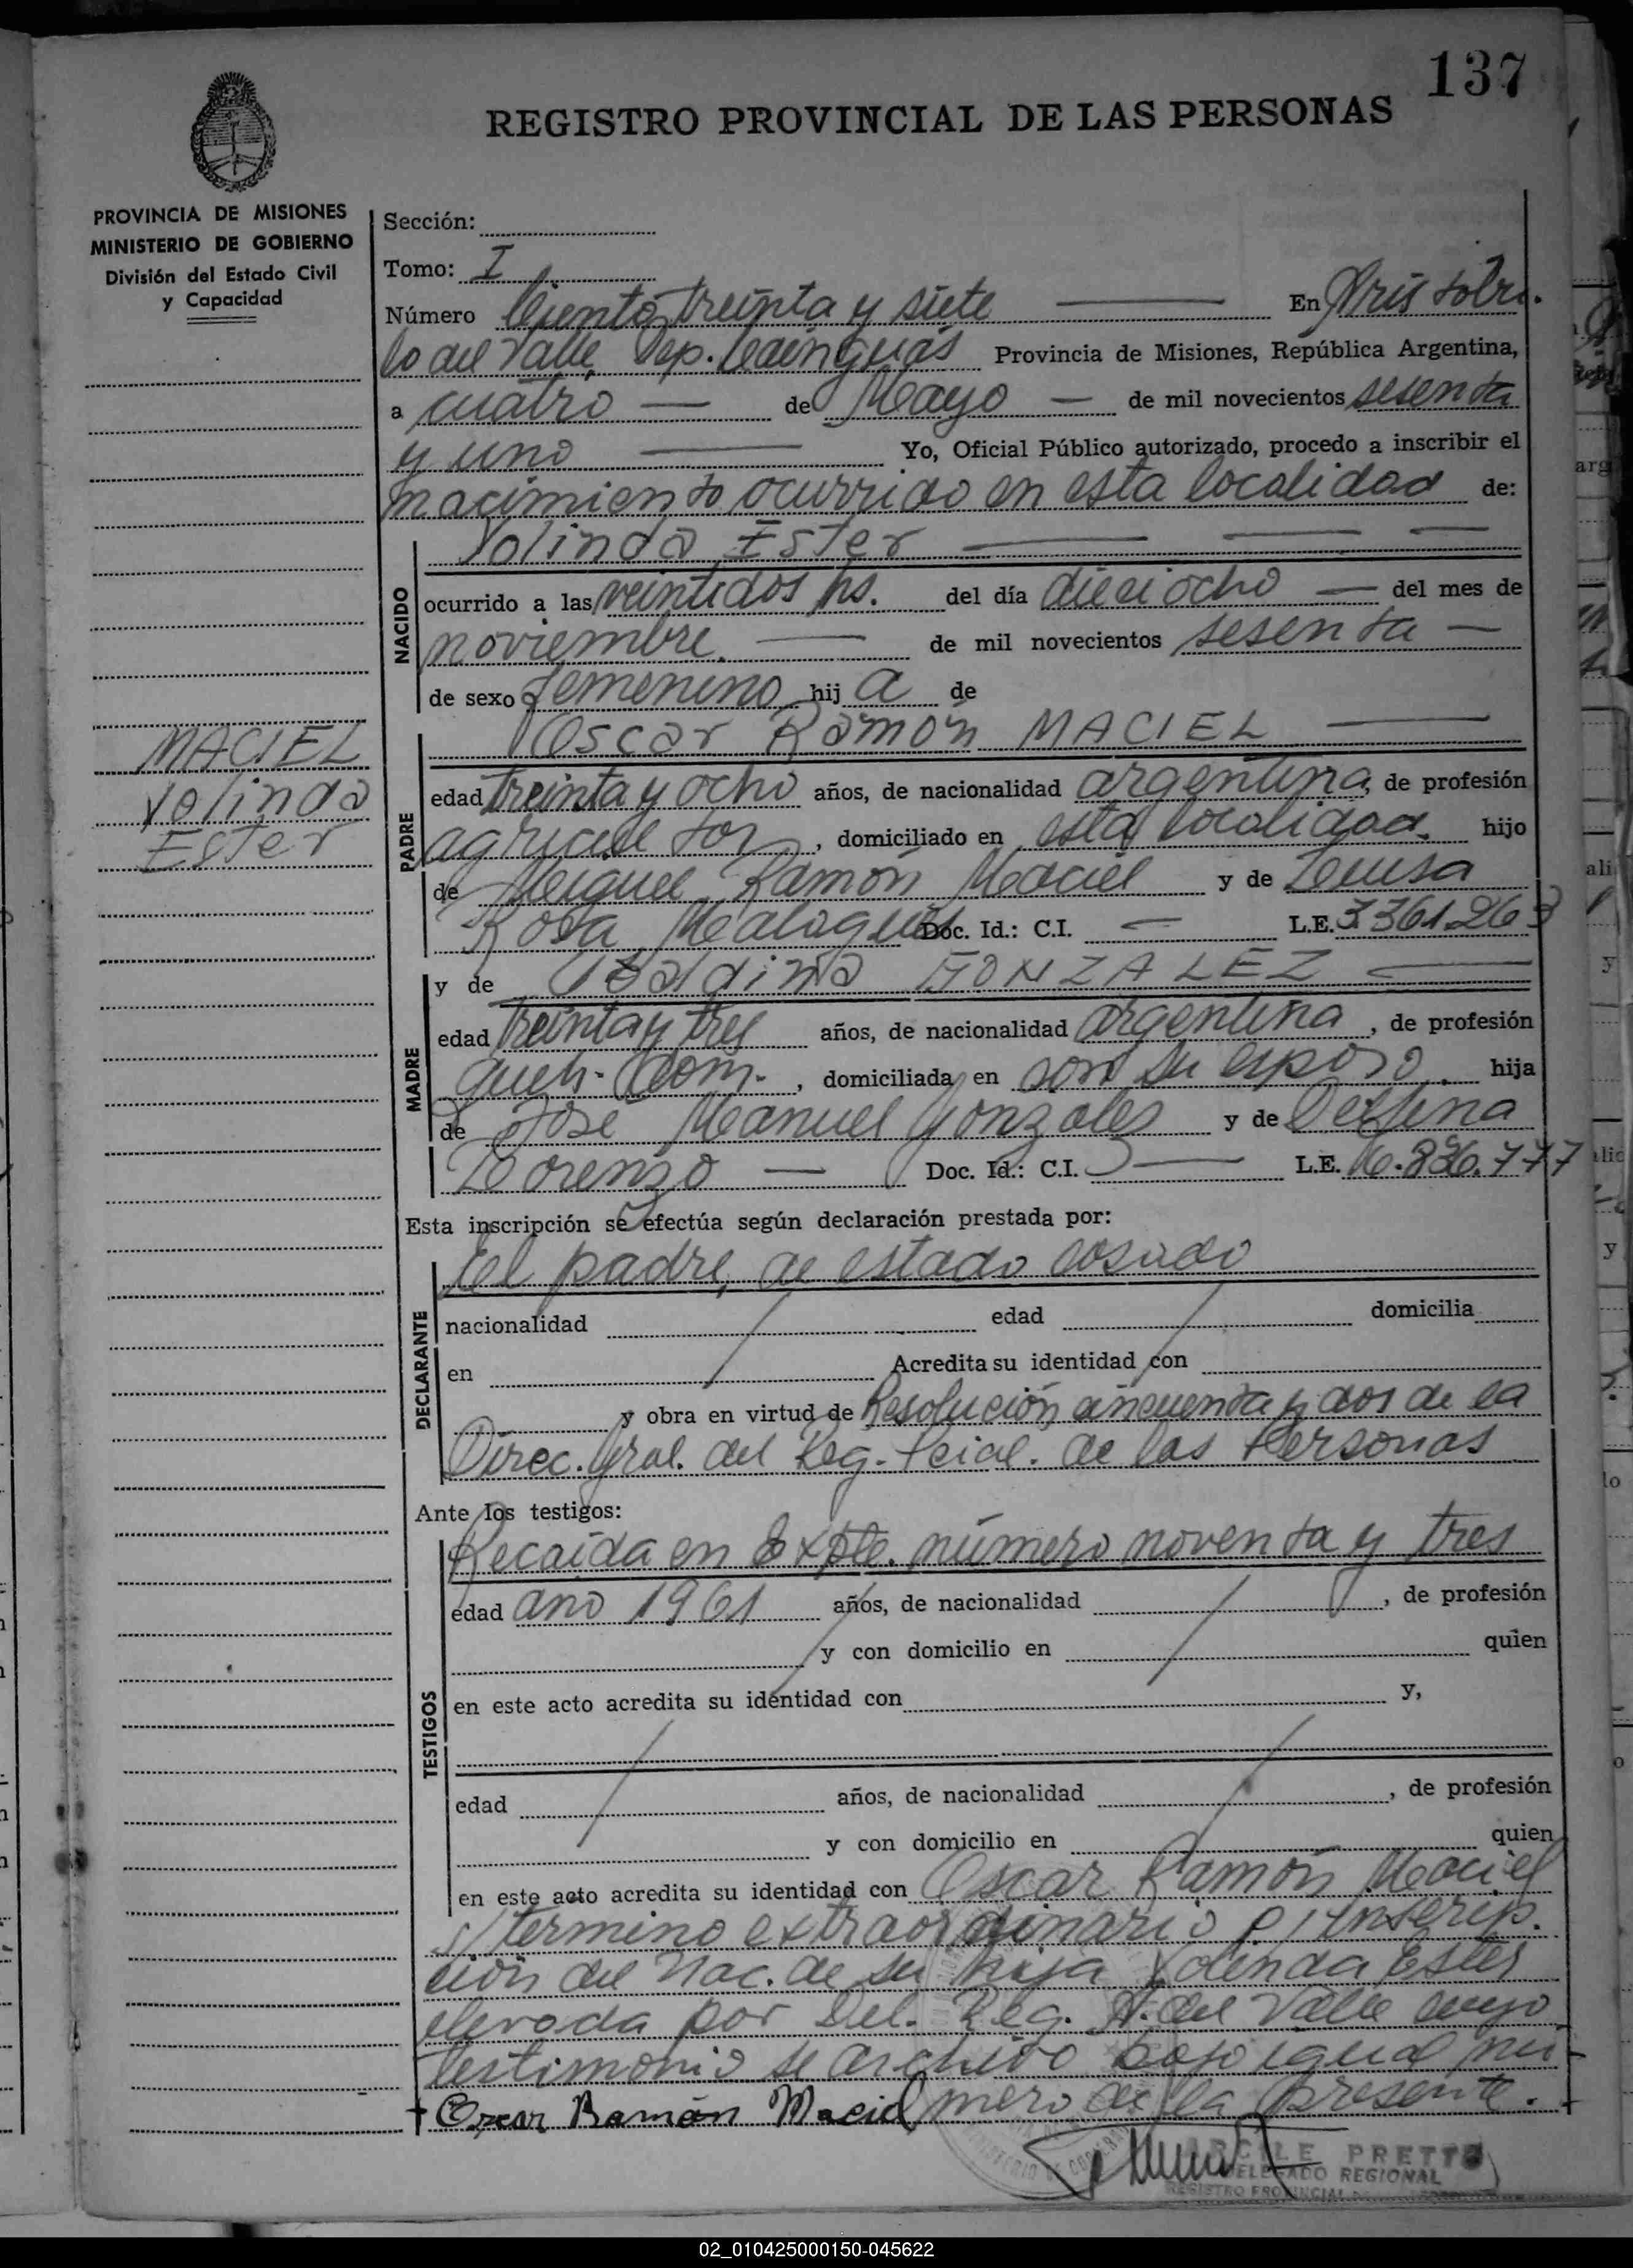 137
REGISTRO PROVINCIAL DE LAS PERSONAS
PROVINCIA DE MISIONES
MINISTERIO DE GOBIERNO
División del Estado Civil
y Capacidad
Sección:
Tomo: I
Número Ciento treinta y siete En Aristóbu-
lo del Valle, Dep. Cainguás Provincia de Misiones, República Argentina,
a cuatro — de Mayo — de mil novecientos sesenta
y uno — Yo, Oficial Público autorizado, procedo a inscribir el
nacimiento ocurrido en esta localidad de:
Yolinda Ester — — —
NACIDO
ocurrido a las veintidos hs. del día dieciocho — del mes de
noviembre. — de mil novecientos sesenta —
de sexo femenino hij a de
Oscar Ramón MACIEL —
MACIEL
Yolinda
Ester
PADRE
edad treinta y ocho años, de nacionalidad argentina, de profesión
agricultor, domiciliado en esta localidad. hijo
de Miguel Ramón Maciel y de Luisa
Rosa Doc. Id.: C.I. — L.E. 3361263
y de GONZALEZ —
MADRE
edad treinta y tres años, de nacionalidad argentina, de profesión
queh. dom., domiciliada en con su esposo. hija
de José Manuel Gonzales y de Delfina
Lorenzo — Doc. Id.: C.I. — L.E. 6.836.777
Esta inscripción se efectúa según declaración prestada por:
El padre, de estado casado
DECLARANTE
nacionalidad edad domicilia
en Acredita su identidad con
y obra en virtud de Resolución cincuenta y dos de la
Direc. Gral. del Reg. Pcial. de las Personas
Ante los testigos:
Recaída en Expte. número noventa y tres
TESTIGOS
edad año 1961 años, de nacionalidad , de profesión
y con domicilio en quien
en este acto acredita su identidad con y,
edad años, de nacionalidad , de profesión
y con domicilio en quien
en este acto acredita su identidad con Oscar Ramón Maciel
s/termino extraordinario p/inscrip.
ción del Nac. de su hija Yolinda Ester
elevada por Del. Reg. A. del Valle cuyo
testimonio se archivo bajo igual nú-
mero de la presente.
Oscar Ramón Maciel
PRETTO
DELEGADO REGIONAL
REGISTRO PROVINCIAL
02_010425000150-045622